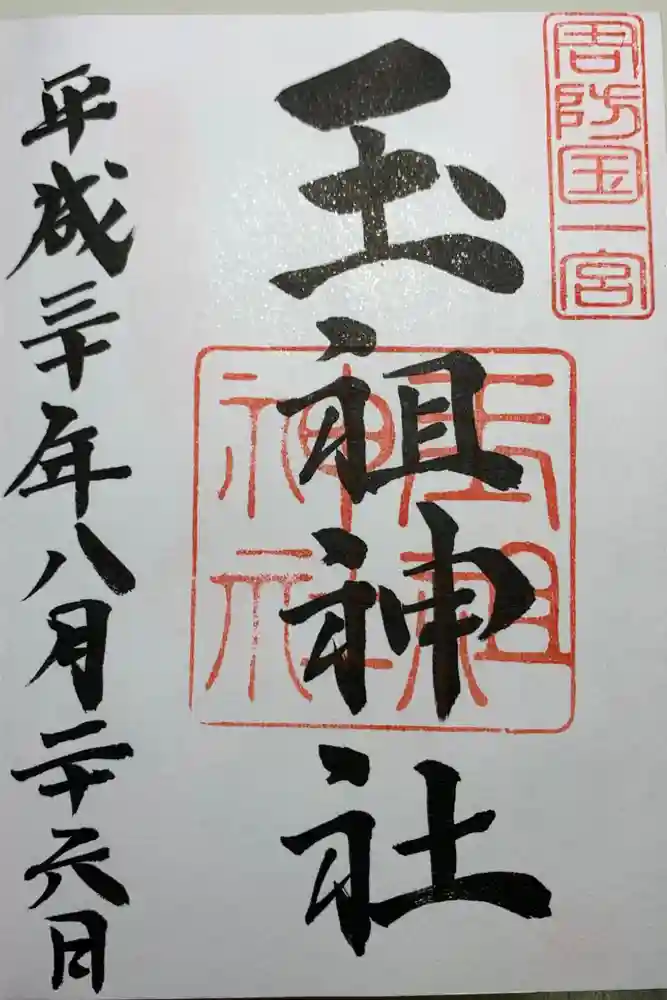 周防国一宮
玉祖神社
玉祖
神社
平成三十年八月二十六日